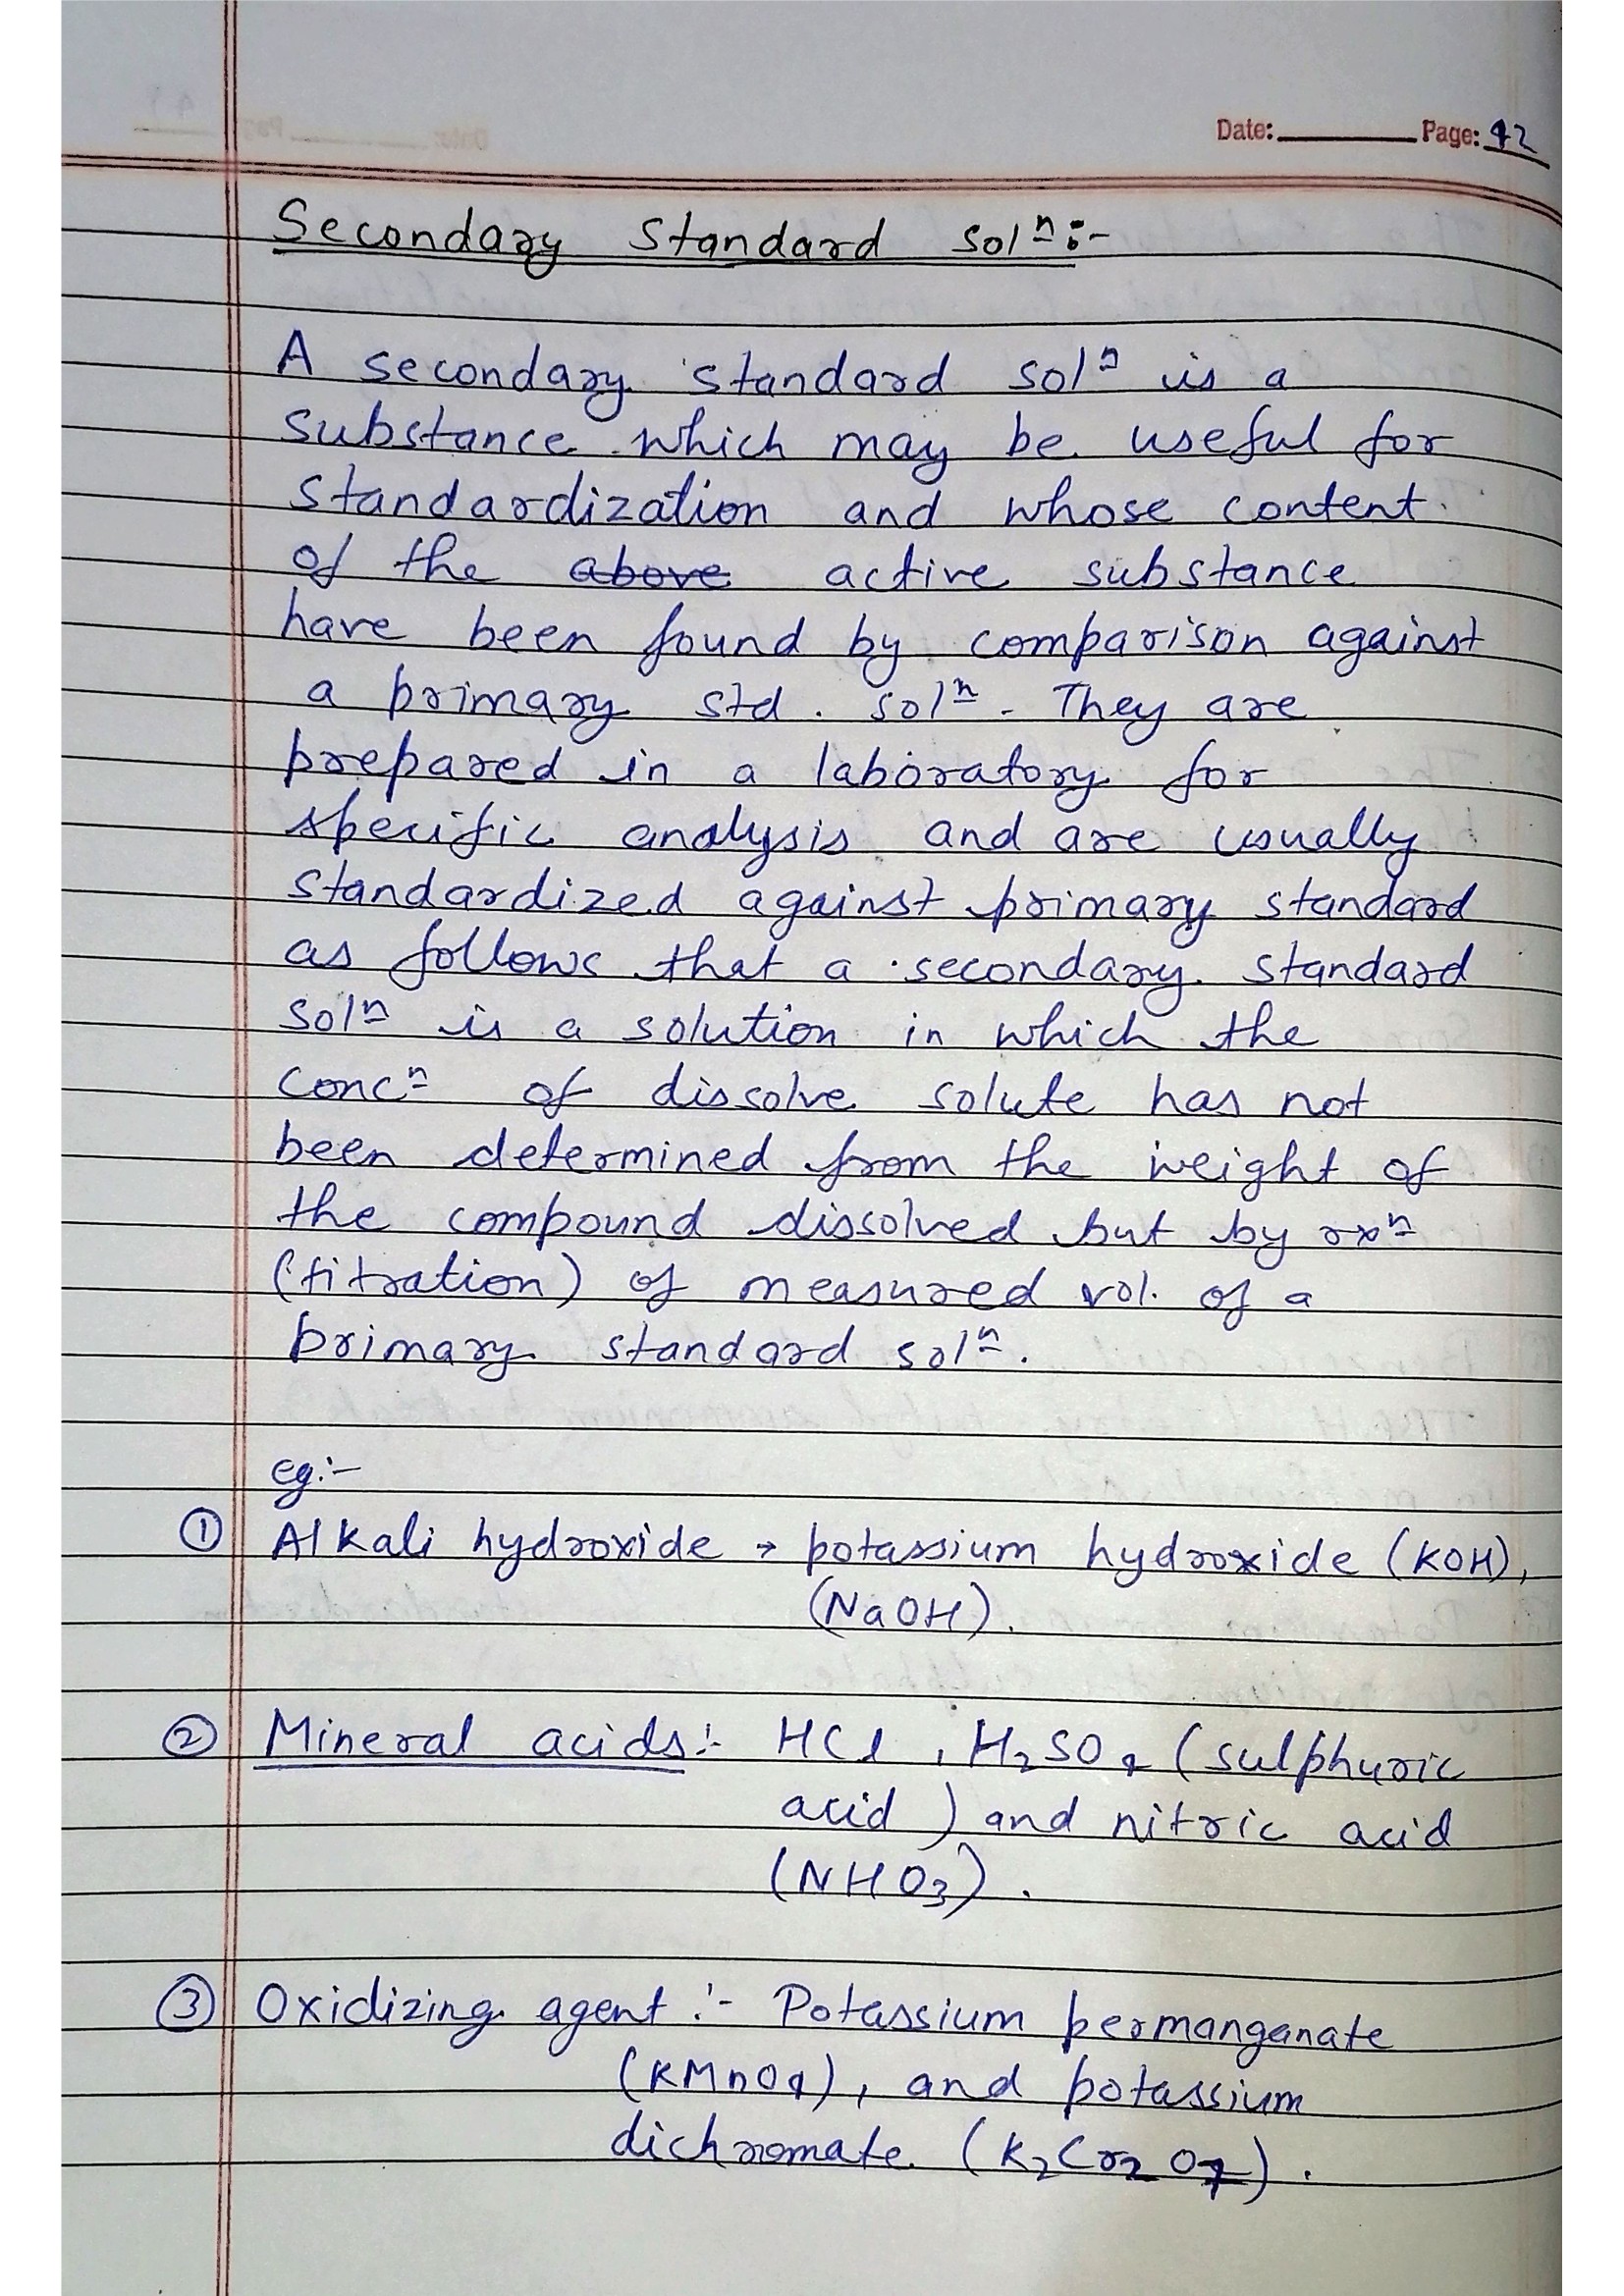 Date: Page: 42
Secondary Standard solⁿ:-
A secondary standard solⁿ is a
substance which may be useful for
standardization and whose content
of the above active substance
have been found by comparison against
a primary std. solⁿ. They are
prepared in a laboratory for
specific analysis and are usually
standardized against primary standard
as follows that a secondary standard
solⁿ is a solution in which the
concⁿ of dissolve solute has not
been determined from the weight of
the compound dissolved but by rxⁿ
(titration) of measured vol. of a
primary standard solⁿ.
eg:-
① Alkali hydroxide → potassium hydroxide (KOH),
(NaOH).
② Mineral acids:- HCl, H₂SO₄ (sulphuric
acid) and nitric acid
(NHO₃).
③ Oxidizing agent :- Potassium permanganate
(KMnO₄), and potassium
dichromate (K₂Cr₂O₇).